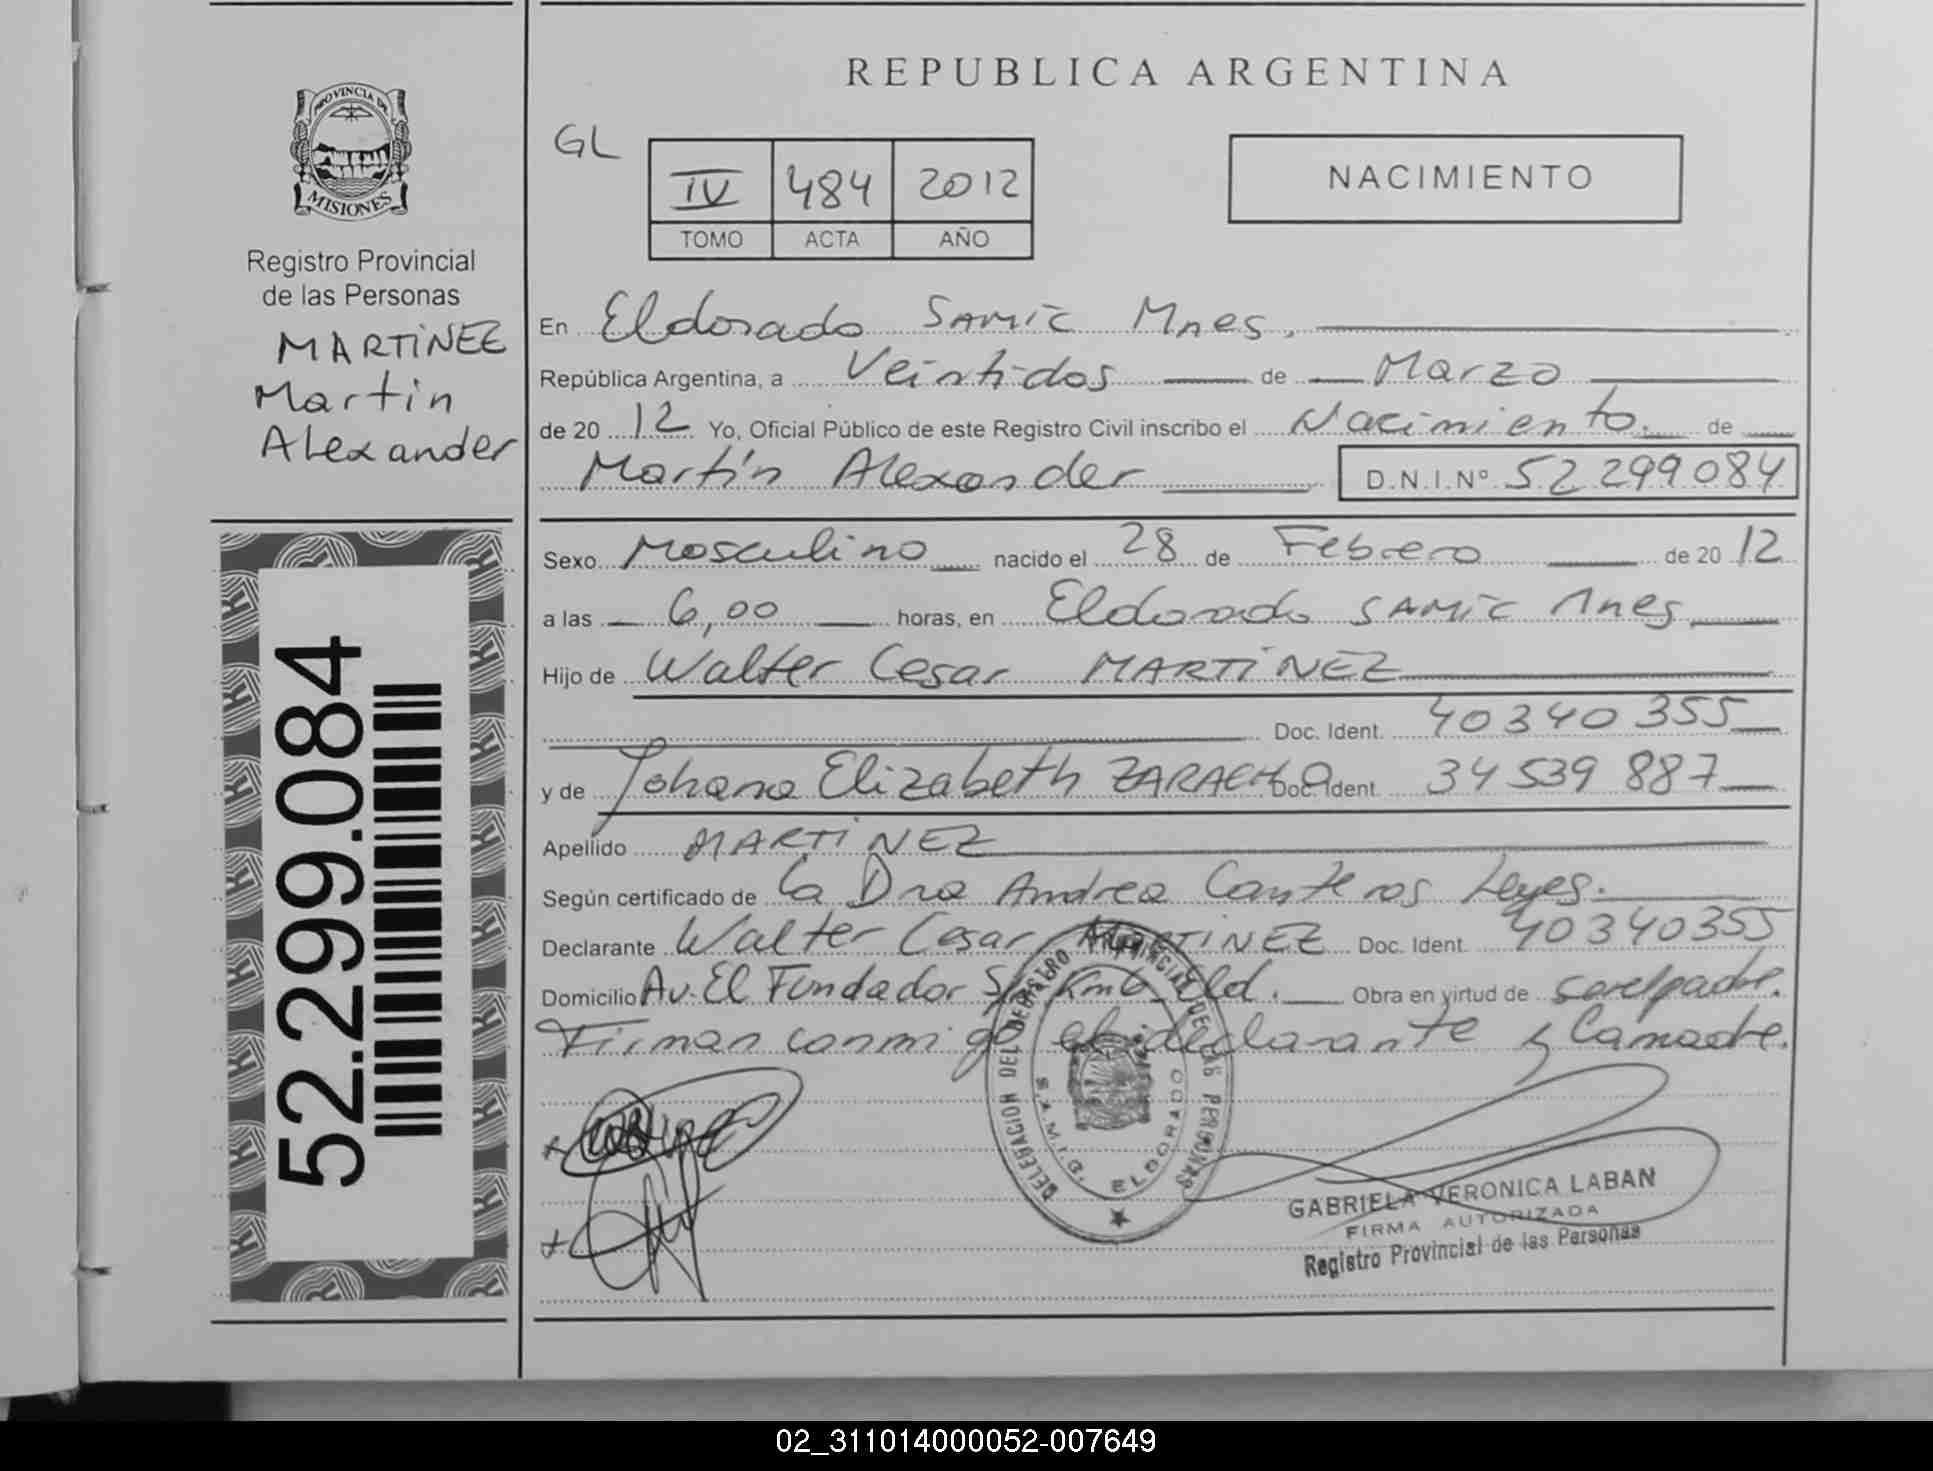 PROVINCIA DE
MISIONES
Registro Provincial
de las Personas
MARTINEZ
Martin
Alexander
52.299.084
REPUBLICA ARGENTINA
GL
IV 484 2012
TOMO ACTA AÑO
NACIMIENTO
En Eldorado SAMIC Mnes.
República Argentina, a Veintidos de Marzo
de 20 12 Yo, Oficial Público de este Registro Civil inscribo el Nacimiento. de
Martín Alexander D.N.I.Nº 52 299 084
Sexo Masculino nacido el 28 de Febrero de 20 12
a las 6,00 horas, en Eldorado SAMIC Mnes
Hijo de Walter Cesar MARTINEZ
Doc. Ident. 40340355
y de Johana Elizabeth ZARACHO Doc. Ident. 34 539 887
Apellido MARTINEZ
Según certificado de la Dra Andrea Canteros Leyes.
Declarante Walter Cesar MARTINEZ Doc. Ident. 40340355
Domicilio Av. El Fundador S/N Km6 Eld. Obra en virtud de ser el padre.
Firman conmigo el declarante y la madre.
DELEGACION DEL REGISTRO PROVINCIAL DE LAS PERSONAS
S.A.M.I.C. ELDORADO
GABRIELA VERONICA LABAN
FIRMA AUTORIZADA
Registro Provincial de las Personas
02_311014000052-007649